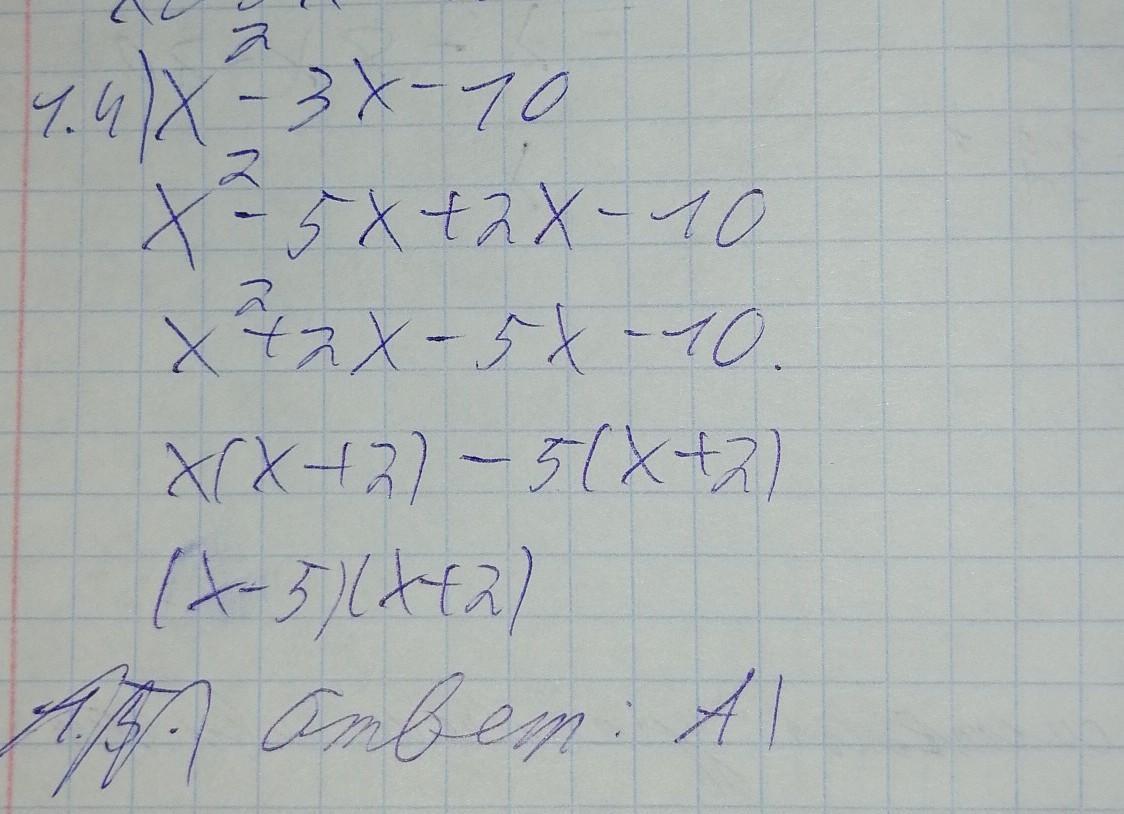 1.4) x² - 3x - 10
x² - 5x + 2x - 10
x² + 2x - 5x - 10.
x(x + 2) - 5(x + 2)
(x - 5)(x + 2)
ответ: А)